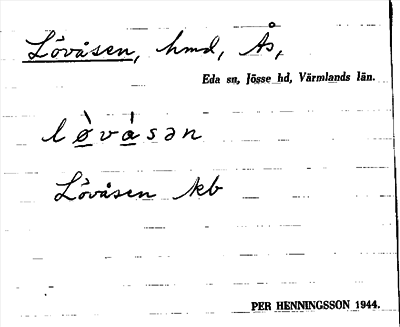 Lövåsen, hmd, Ås,
Eda sn, Jösse hd, Värmlands län.
lø̀vàsən
Lövåsen kb
PER HENNINGSSON 1944.